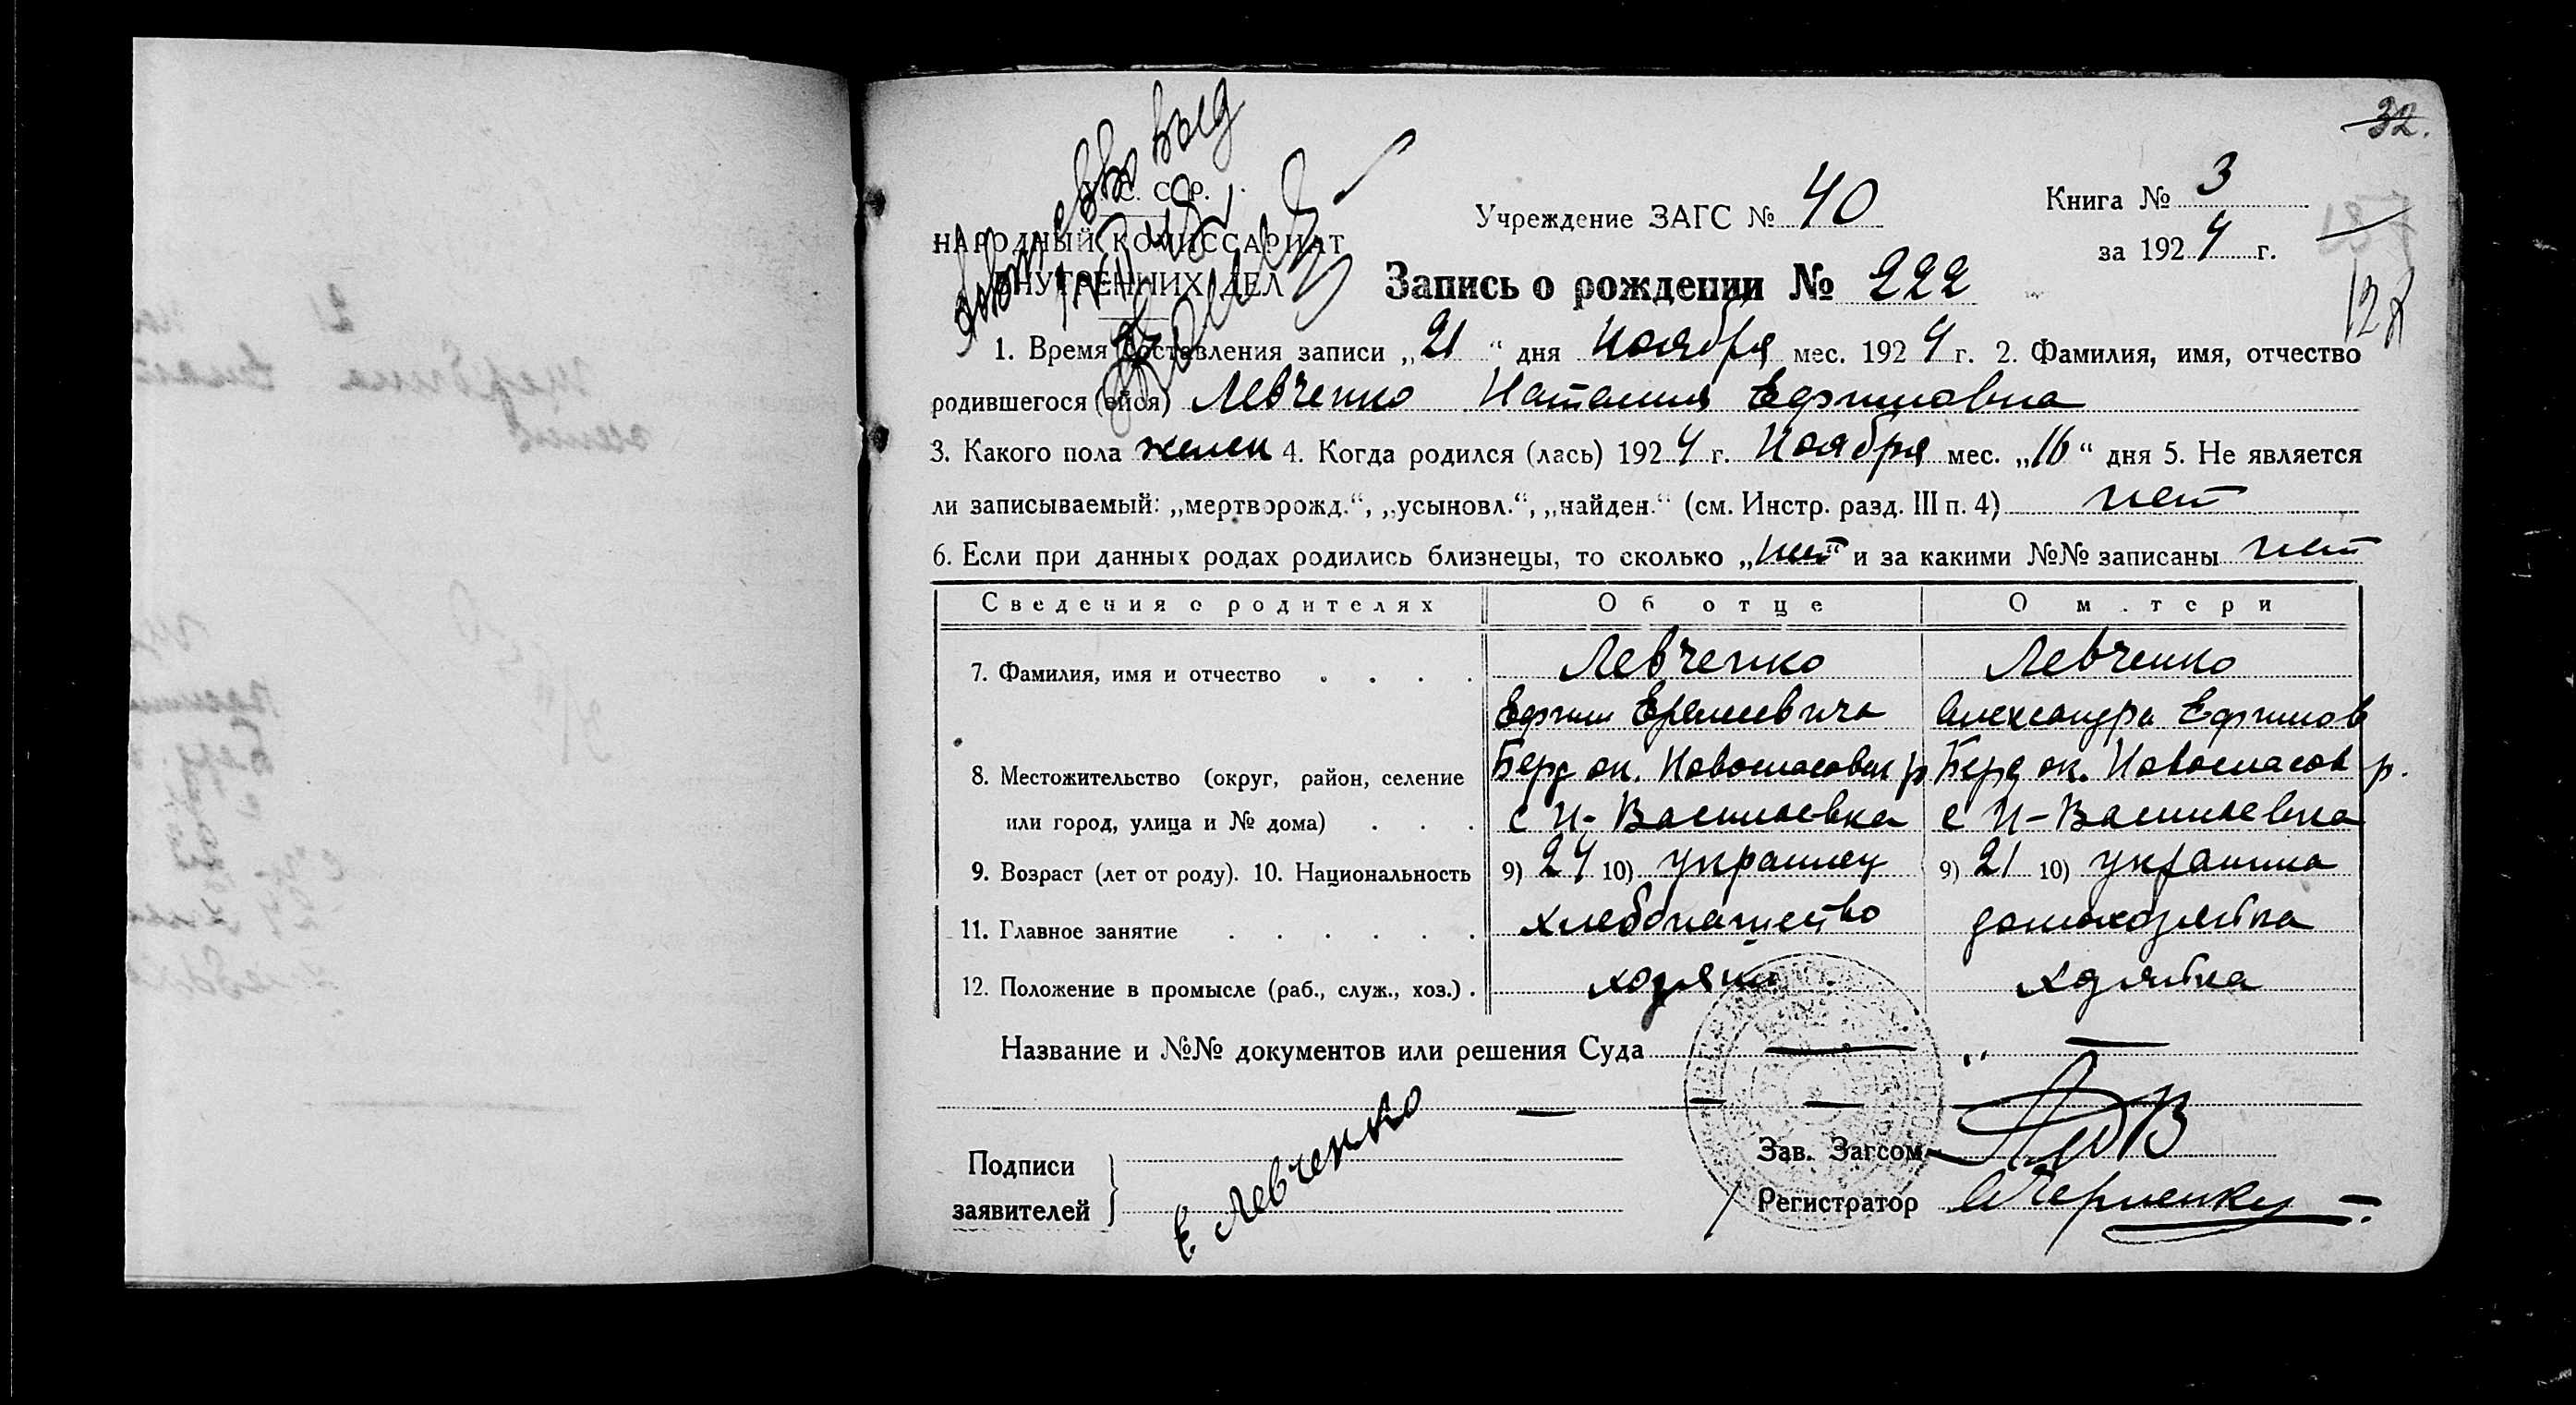 32.
С. С. Р.
НАРОДНЫЙ КОМИССАРИАТ
ВНУТРЕННИХ ДЕЛ
Учреждение ЗАГС № 40
Книга № 3
за 1924 г.
Запись о рождении № 222
1. Время составления записи „21“ дня Ноября мес. 1924 г. 2. Фамилия, имя, отчество
родившегося (ейся) Левченко Наталия Ефимовна
3. Какого пола женск 4. Когда родился (лась) 1924 г. Ноября мес. „16“ дня 5. Не является
ли записываемый: „мертворожд.“, „усыновл.“, „найден.“ (см. Инстр. разд. III п. 4) нет
6. Если при данных родах родились близнецы, то сколько „нет“ и за какими №№ записаны нет
Сведения о родителях Об отце О м.тери
7. Фамилия, имя и отчество . . . . Левченко Левченко
Ефим Еремеевича Александра Ефимов
8. Местожительство (округ, район, селение Берд ок. Новоспасовск р Берд ок. Новоспасов р.
или город, улица и № дома) . . . с Н-Васильевка с Н-Васильевка
9. Возраст (лет от роду). 10. Национальность 9) 24 10) украинец 9) 21 10) украинка
11. Главное занятие . . . . . . хлебопашество домохозяйка
12. Положение в промысле (раб., служ., хоз.) . хозяин хозяйка
Название и №№ документов или решения Суда
Подписи
заявителей
Е. Левченко
Зав. Загсом
Регистратор